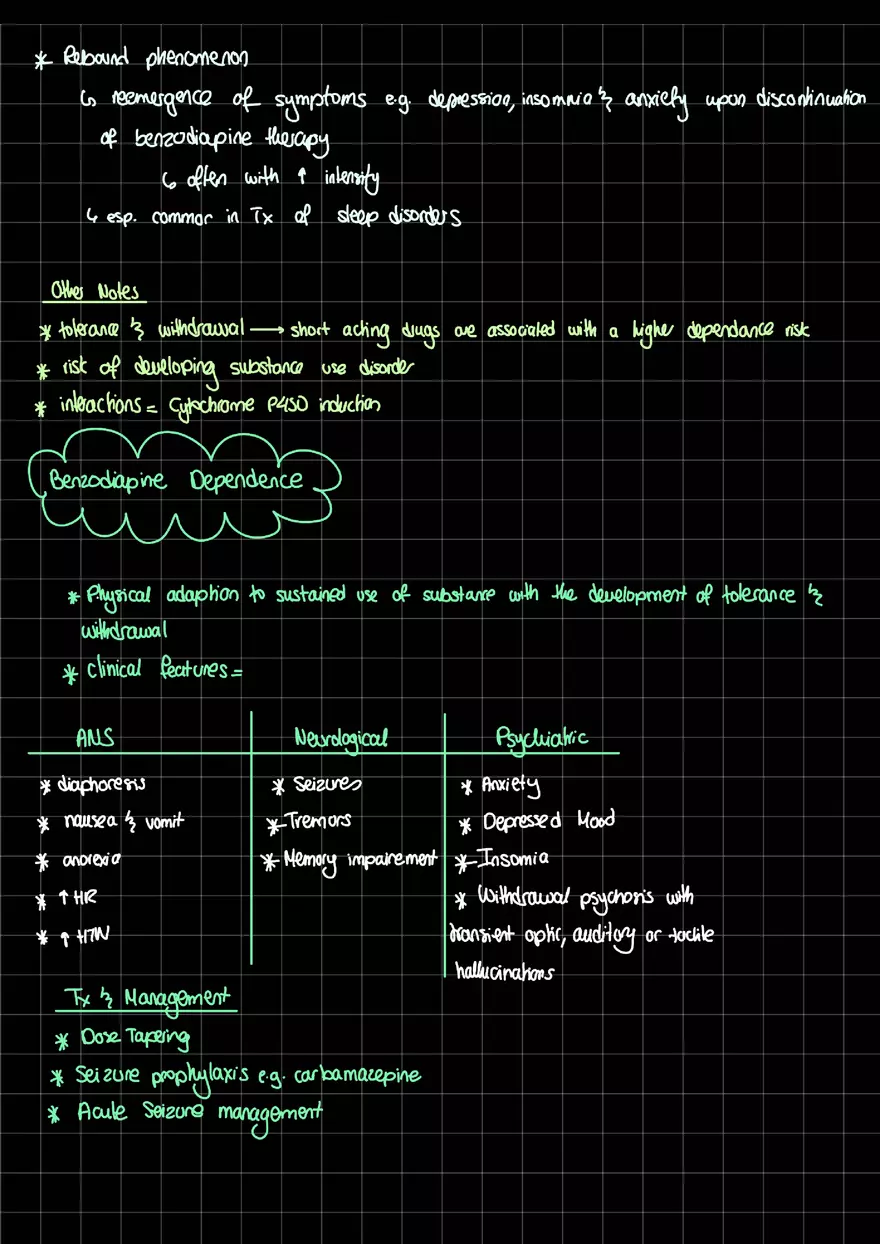 * Rebound phenomenon
↳ reemergence of symptoms e.g. depression, insomnia & anxiety upon discontinuation
of benzodiapine therapy
↳ often with ↑ intensity
↳ esp. common in Tx of sleep disorders
Other Notes
* tolerance & withdrawal → short acting drugs are associated with a higher dependance risk
* risk of developing substance use disorder
* interactions = Cytochrome P450 induction
Benzodiapine Dependence
* Physical adaption to sustained use of substance with the development of tolerance &
withdrawal
* clinical features =
ANS Neurological Psychiatric
* diaphoresis * Seizures * Anxiety
* nausea & vomit * Tremors * Depressed Mood
* anorexia * Memory impairement * Insomia
* ↑ HR * Withdrawal psychosis with
* ↑ HTN transient optic, auditory or tactile
hallucinations
Tx & Management
* Dose Tapering
* Seizure prophylaxis e.g. carbamazepine
* Acute Seizure management